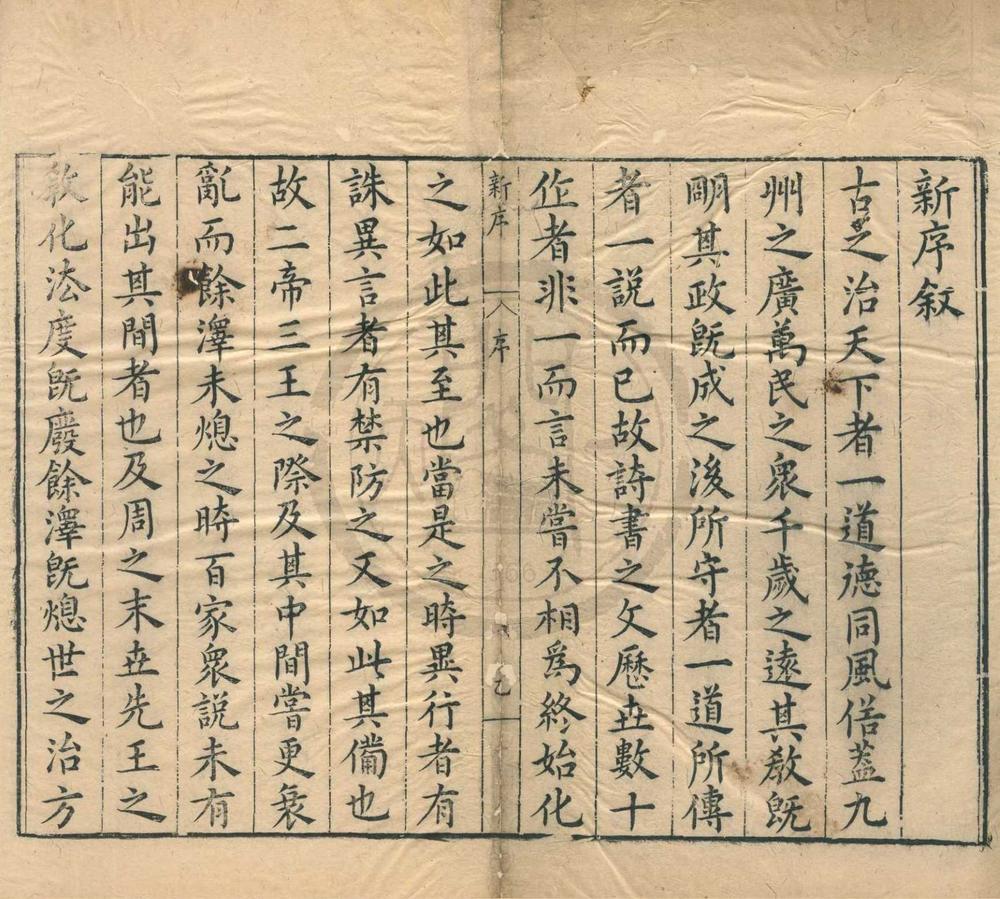 新序敘
古之治天下者一道德同風俗蓋九
州之廣萬民之眾千歲之遠其敎旣
明其政旣成之後所守者一道所傳
者一說而已故詩書之文歷世數十
作者非一而言未嘗不相爲終始化
新序 序 乙
之如此其至也當是之時異行者有
誅異言者有禁防之又如此其備也
故二帝三王之際及其中間嘗更衰
亂而餘澤未熄之時百家眾說未有
能出其間者也及周之末世先王之
敎化法度旣廢餘澤旣熄世之治方